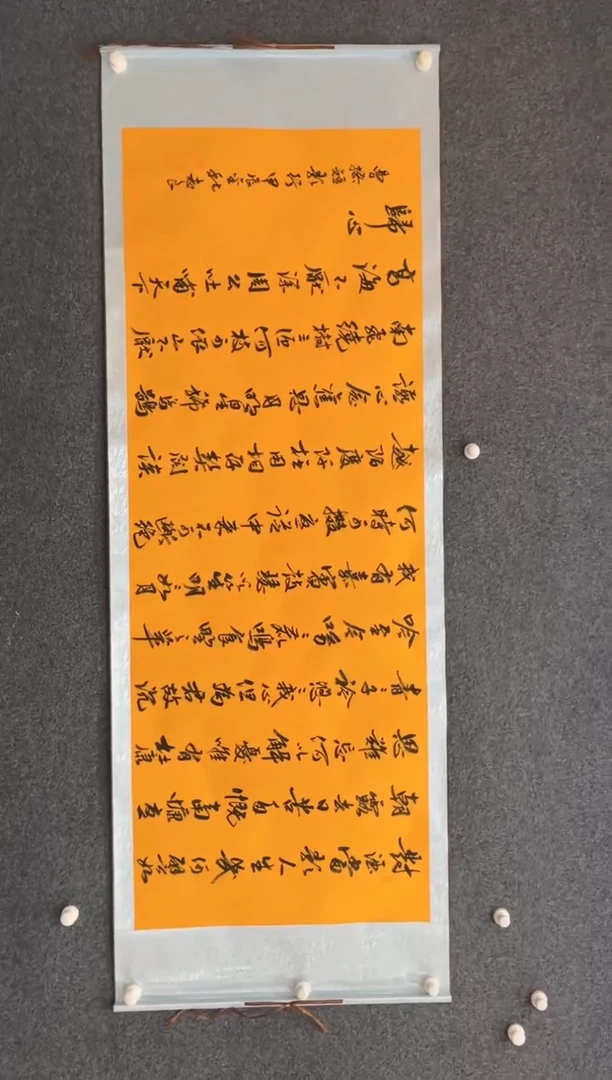 對酒當歌人生幾何譬如
朝露去日苦多慨當慷憂
思難忘何以解憂唯有杜康
青青子衿悠悠我心但為君故沉
吟至今呦呦鹿鳴食野之苹
我有嘉賓鼓瑟吹笙明明如月
何時可掇憂從中來不可斷絕
越陌度阡枉用相存契闊談
讌心念舊恩月明星稀烏鵲
南飛繞樹三匝何枝可依山不厭
高海不厭深周公吐哺天下
歸心
曹操短歌行甲辰年秋